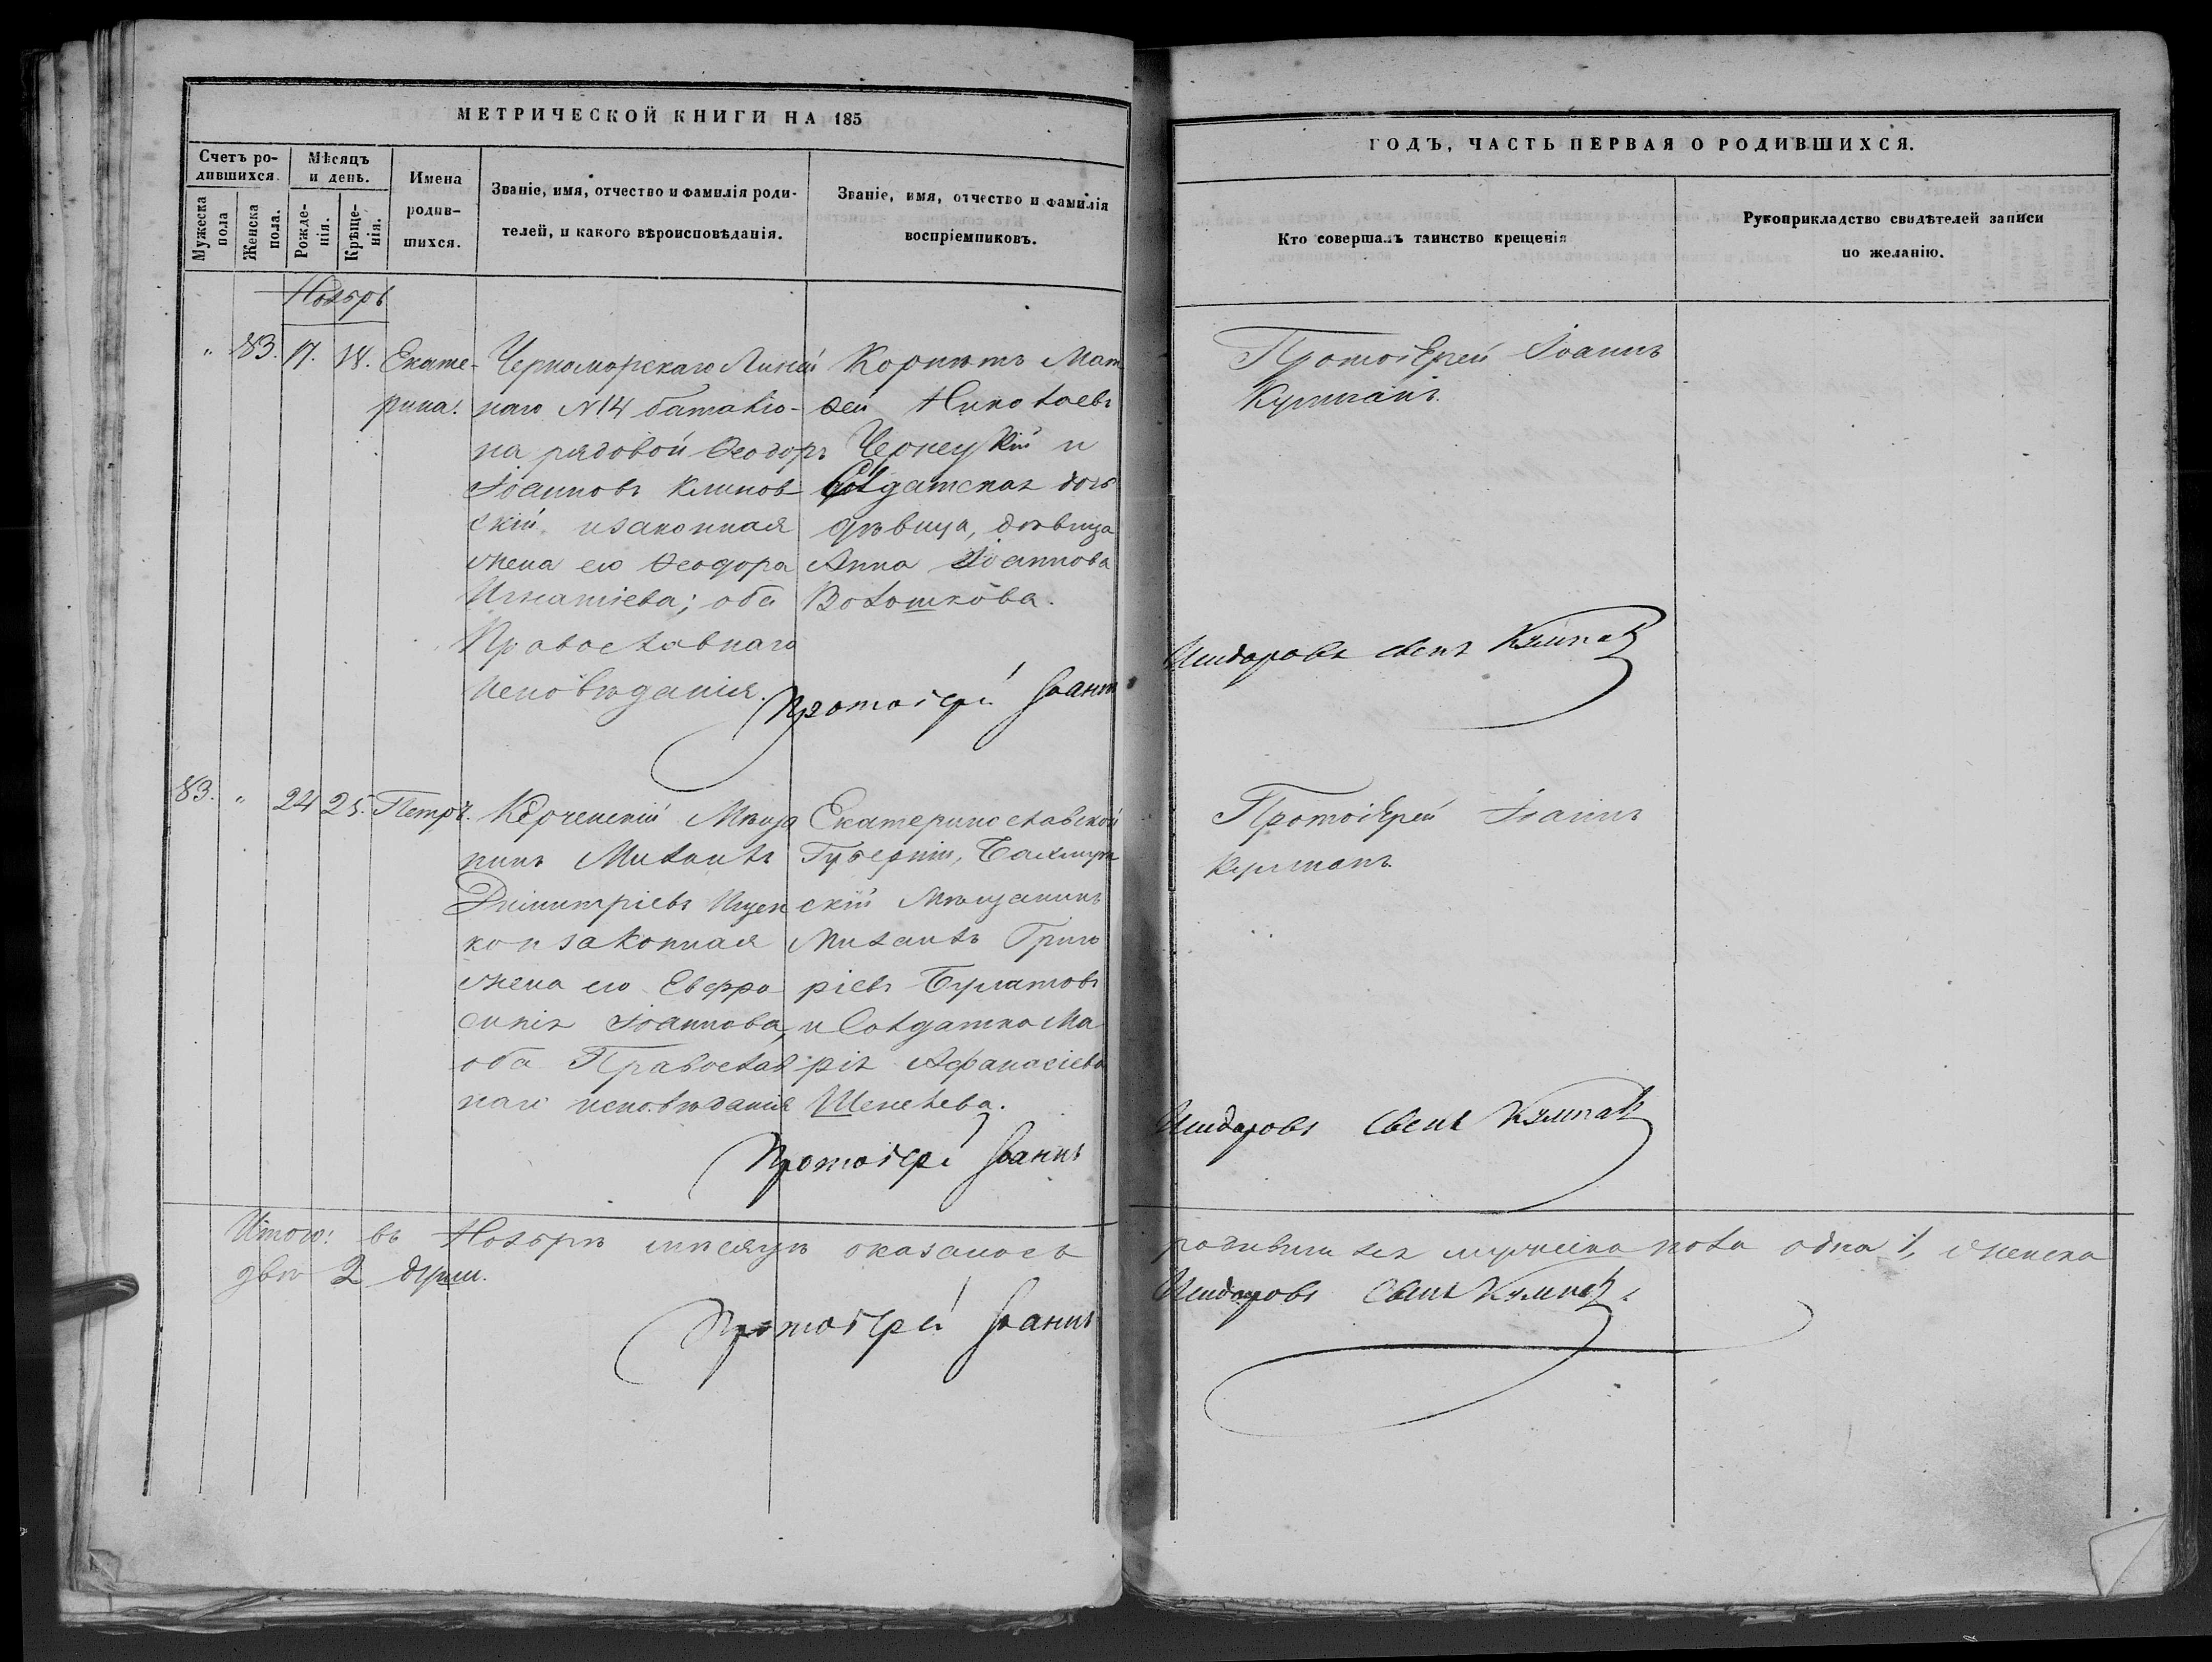 МЕТРИЧЕСКОЙ КНИГИ НА 185
Счетъ ро-
дившихся.
Мѣсяцъ
и день.
Мужеска
пола
Женска
пола.
Рожде-
нія.
Крѣще-
нія.
Имена
родив-
шихся.
Званіе, имя, отчество и фамилія роди-
телей, и какого вѣроисповѣданія.
Званіе, имя, отчество и фамилія
воспріемниковъ.
Ноябрь
" 83. 17. 18. Екате-
рина.
Черноморскаго Линей
наго N14 баталіо-
на рядовой Ѳеодоръ
Іоанновъ Климов
скій изаконная
жена его Ѳеодора
Игнатіева; оба
Православнаго
Исповѣданія.
Корнетъ Мат
ѳей Николаевъ
Чернецкій и
Солдатская дочь
дѣвица, дѣвица
Анна Іоаннова
Волошкова.
Протоіерей Іоаннъ
83. " 24 25. Петръ.
Керченскій Мѣща
нинъ Михаилъ
Димитріевъ Ищен
ко и законная
жена его Евфро
синія Іоаннова,
оба Православ
наго исповѣданія
Екатеринославской
Губерніи, Бахмут
скій Мѣщанинъ
Михаилъ Григо
ріевъ Булатовъ
и Солдатка Ма
рія Афанасіева
Шепелева.
Протоіерей Іоаннъ
Итого: въ Ноябрѣ мѣсяцѣ оказалось
двѣ 2 души.
Протоіерей Іоаннъ
ГОДЪ, ЧАСТЬ ПЕРВАЯ О РОДИВШИХСЯ.
Кто совершалъ таинство крещенія
Рукоприкладство свидѣтелей записи
по желанію.
Протоіерей Іоаннъ
Кумпанъ.
Исидоровъ сынъ Кумпанъ
Протоіерей Іоаннъ
Кумпанъ.
Исидоровъ сынъ Кумпанъ
родившихся мужеска пола одна 1, женска
Исидоровъ сынъ Кумпанъ